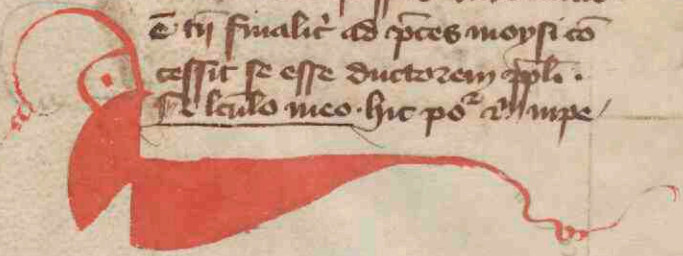 Et tn̄ finalit᷑ ad p̄ces moysi cō
cessit se esse ductorem pp̄li .
De lc̄ulo meo . hic po᷑ impe